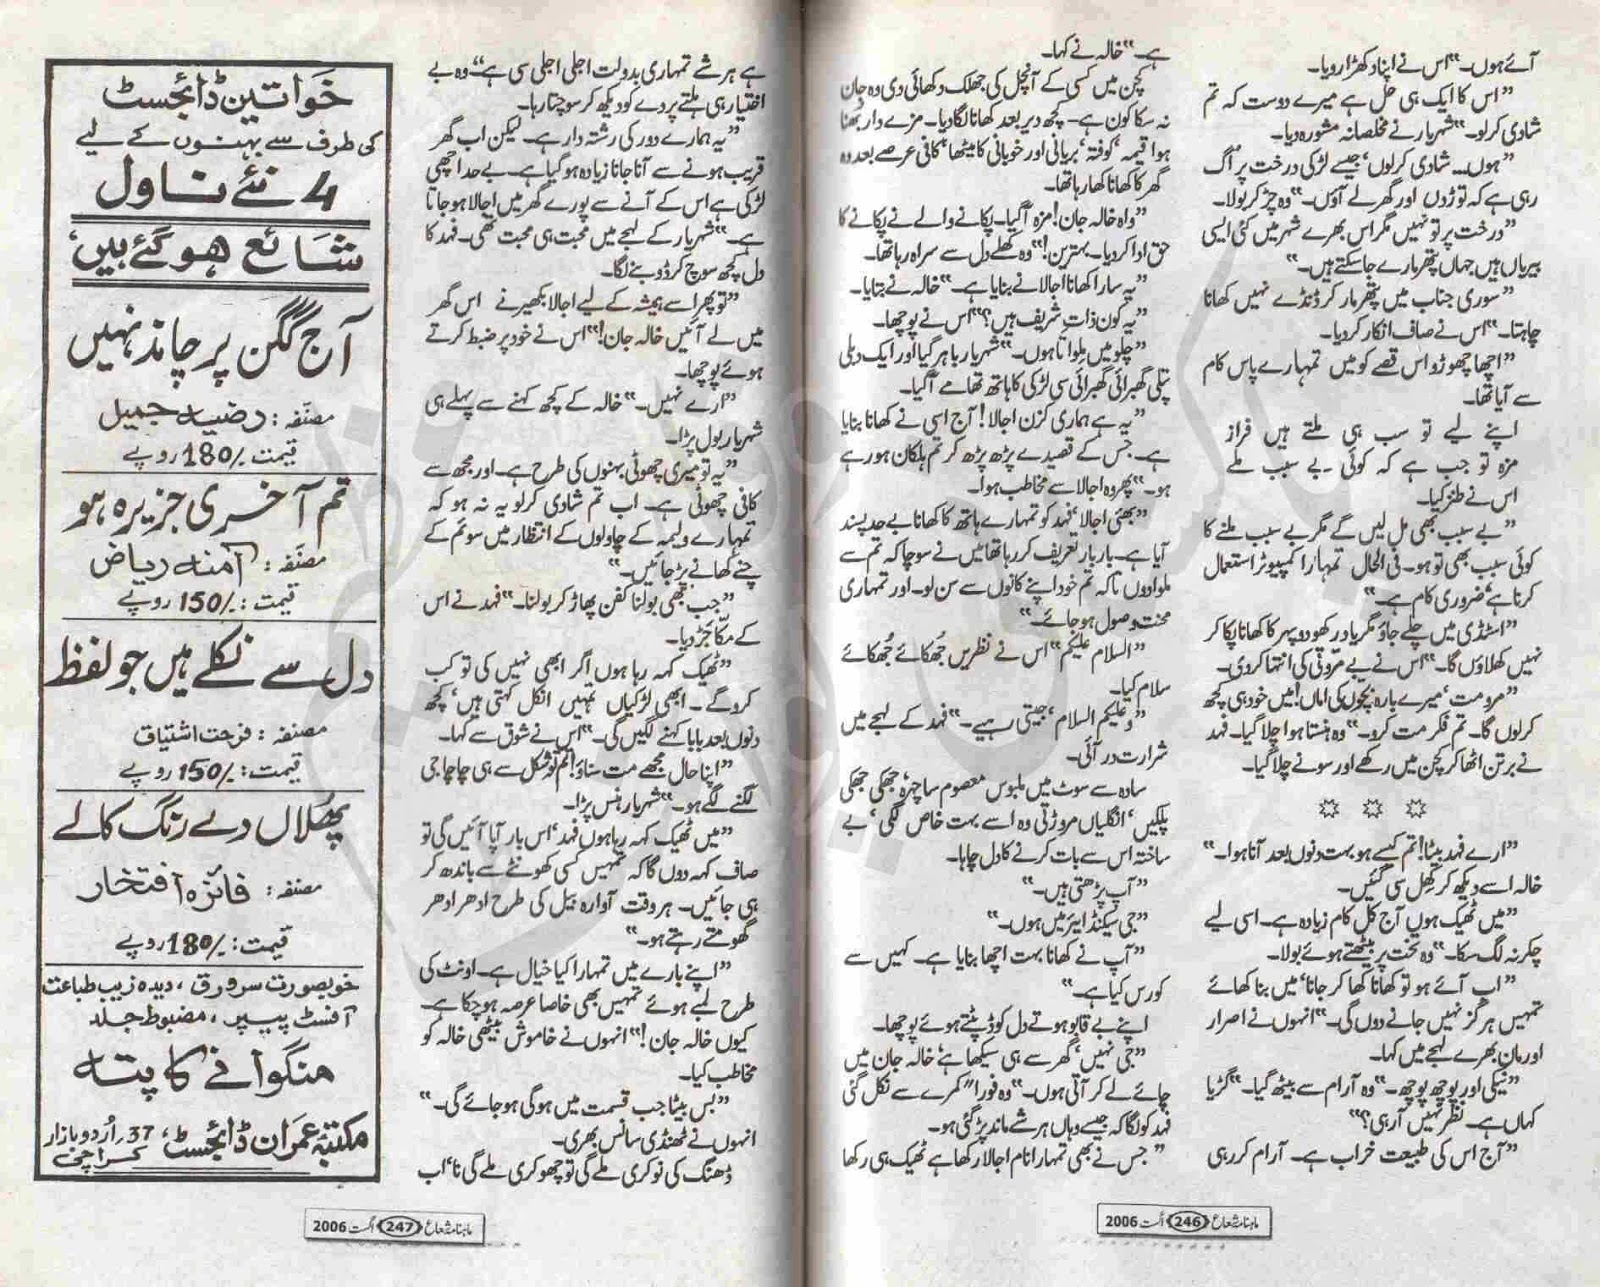 آئے ہوں۔“ اس نے اپنا دکھڑا رویا۔
”اس کا ایک ہی حل ہے میرے دوست کہ تم
شادی کر لو۔“ شہریار نے مخلصانہ مشورہ دیا۔
”ہوں... شادی کر لوں‘ جیسے لڑکی درخت پر اُگ
رہی ہے کہ توڑوں اور گھر لے آؤں۔“ وہ چڑ کر بولا۔
”درخت پر تو نہیں مگر اس بھرے شہر میں کئی ایسی
بیریاں ہیں جہاں پتھر مارے جا سکتے ہیں۔“
”سوری جناب میں پتھر مار کر ڈنڈے نہیں کھانا
چاہتا۔“ اس نے صاف انکار کر دیا۔
”اچھا چھوڑو اس قصے کو میں تمہارے پاس کام
سے آیا تھا۔
اپنے لیے تو سب ہی ملتے ہیں فراز
مزہ تو جب ہے کہ کوئی بے سبب ملے
اس نے طنز کیا۔
”بے سبب بھی مل لیں گے مگر بے سبب ملنے کا
کوئی سبب بھی تو ہو۔ فی الحال تمہارا کمپیوٹر استعمال
کرنا ہے‘ ضروری کام ہے۔“
”اسٹڈی میں چلے جاؤ مگر یاد رکھو دوپہر کا کھانا پکا کر
نہیں کھلاؤں گا۔“ اس نے بے مروّتی کی انتہا کر دی۔
”مرو مت‘ میرے بارہ بچوں کی اماں! میں خود ہی کچھ
کر لوں گا۔ تم فکر مت کرو۔“ وہ ہنستا ہوا چلا گیا۔ فہد
نے برتن اٹھا کر کچن میں رکھے اور سونے چلا گیا۔
”ارے فہد بیٹا! تم کیسے ہو بہت دنوں بعد آنا ہوا۔“
خالہ اسے دیکھ کر کھل سی گئیں۔
”میں ٹھیک ہوں آج کل کام زیادہ ہے۔ اسی لیے
چکر نہ لگ سکا۔“ وہ تخت پر بیٹھتے ہوئے بولا۔
”اب آئے ہو تو کھانا کھا کر جانا‘ میں بنا کھائے
تمہیں ہرگز نہیں جانے دوں گی۔“ انہوں نے اصرار
اور مان بھرے لہجے میں کہا۔
”نیکی اور پوچھ پوچھ۔“ وہ آرام سے بیٹھ گیا۔ ”گڑیا
کہاں ہے۔ نظر نہیں آ رہی؟“
”آج اس کی طبیعت خراب ہے۔ آرام کر رہی
ہے۔“ خالہ نے کہا۔
کچن میں کسی کے آنچل کی جھلک دکھائی دی وہ جان
نہ سکا کون ہے۔ کچھ دیر بعد کھانا لگا دیا۔ مزے دار بھُنا
ہوا قیمہ‘ کوفتہ‘ بریانی اور خوبانی کا میٹھا‘ کافی عرصے بعد وہ
گھر کا کھانا کھا رہا تھا۔
”واہ خالہ جان! مزہ آ گیا۔ پکانے والے نے پکانے کا
حق ادا کر دیا۔ بہترین!“ وہ کھلے دل سے سراہ رہا تھا۔
”یہ سارا کھانا اجالا نے بنایا ہے۔“ خالہ نے بتایا۔
”یہ کون ذات شریف ہیں؟“ اس نے پوچھا۔
”چلو میں بلواتا ہوں۔“ شہریار باہر گیا اور ایک دبلی
پتلی گھبرائی گھبرائی سی لڑکی کا ہاتھ تھامے آ گیا۔
”یہ ہے ہماری کزن اجالا! آج اسی نے کھانا بنایا
ہے۔ جس کے قصیدے پڑھ پڑھ کر تم ہلکان ہو رہے
ہو۔“ پھر وہ اجالا سے مخاطب ہوا۔
”بھئی اجالا‘ فہد کو تمہارے ہاتھ کا کھانا بے حد پسند
آیا ہے۔ بار بار تعریف کر رہا تھا میں نے سوچا کہ تم سے
ملوا دوں تاکہ تم خود اپنے کانوں سے سن لو۔ اور تمہاری
محنت وصول ہو جائے۔“
”السلام علیکم“ اس نے نظریں جُھکائے جُھکائے
سلام کیا۔
”وعلیکم السلام‘ جیتی رہیے۔“ فہد کے لہجے میں
شرارت در آئی۔
سادہ سے سوٹ میں ملبوس معصوم سا چہرہ جھکی جھکی
پلکیں‘ انگلیاں مروڑتی وہ اسے بہت خاص لگی‘ بے
ساختہ اس سے بات کرنے کا دل چاہا۔
”آپ پڑھتی ہیں۔“
”جی سیکنڈ ایئر میں ہوں۔“
”آپ نے کھانا بہت اچھا بنایا ہے۔ کہیں سے
کورس کیا ہے۔“
اپنے بے قابو ہوتے دل کو ڈپٹتے ہوئے پوچھا۔
”جی نہیں‘ گھر سے ہی سیکھا ہے‘ خالہ جان میں
چائے لے کر آتی ہوں۔“ وہ فوراً کمرے سے نکل گئی
فہد کو لگا کہ جیسے وہاں ہر شے ماند پڑ گئی ہو۔
”جس نے بھی تمہارا نام اجالا رکھا ہے ٹھیک ہی رکھا
ماہنامہ شعاع 246 اگست 2006
ہے ہر شے تمہاری بدولت اجلی اجلی سی ہے“۔ وہ بے
اختیار ہی ہلتے پردے کو دیکھ کر سوچتا رہا۔
”یہ ہمارے دور کی رشتہ دار ہے۔ لیکن اب گھر
قریب ہونے سے آنا جانا زیادہ ہو گیا ہے۔ بے حد اچھی
لڑکی ہے اس کے آنے سے پورے گھر میں اجالا ہو جاتا
ہے۔“ شہریار کے لہجے میں محبت ہی محبت تھی۔ فہد کا
دل کچھ سوچ کر ڈوبنے لگا۔
”تو پھر اسے ہمیشہ کے لیے اجالا بکھیرنے اس گھر
میں لے آئیں خالہ جان!“ اس نے خود پر ضبط کرتے
ہوئے پوچھا۔
”ارے نہیں۔“ خالہ کے کچھ کہنے سے پہلے ہی
شہریار بول پڑا۔
”یہ تو میری چھوٹی بہنوں کی طرح ہے۔ اور مجھ سے
کافی چھوٹی ہے۔ اب تم شادی کر لو یہ نہ ہو کہ
تمہارے ولیمہ کے چاولوں کے انتظار میں سوئم کے
چنے کھانے پڑ جائیں۔“
”جب بھی بولنا کفن پھاڑ کر بولنا۔“ فہد نے اس
کے مکّا جڑ دیا۔
”ٹھیک کہہ رہا ہوں اگر ابھی نہیں کی تو کب
کرو گے۔ ابھی لڑکیاں تمہیں انکل کہتی ہیں‘ کچھ
دنوں بعد بابا کہنے لگیں گی۔“ اس نے شوق سے کہا۔
”اپنا حال مجھے مت سناؤ! تم تو شکل سے ہی چاچا جی
لگنے لگے ہو۔“ شہریار ہنس پڑا۔
”میں ٹھیک کہہ رہا ہوں فہد‘ اس بار آپا آئیں گی تو
صاف کہہ دوں گا کہ تمہیں کسی کھونٹے سے باندھ کر
ہی جائیں۔ ہر وقت آوارہ بیل کی طرح ادھر ادھر
گھومتے رہتے ہو۔“
”اپنے بارے میں تمہارا کیا خیال ہے۔ اونٹ کی
طرح لمبے ہوئے تمہیں بھی خاصا عرصہ ہو چکا ہے۔
کیوں خالہ جان!“ انہوں نے خاموش بیٹھی خالہ کو
مخاطب کیا۔
”بس بیٹا جب قسمت میں ہو گی ہو جائے گی۔“
انہوں نے ٹھنڈی سانس بھری۔
ڈھنگ کی نوکری ملے گی تو چھوکری ملے گی نا‘ اب
خواتین ڈائجسٹ
کی طرف سے بہنوں کے لیے
4 نئے ناول
شائع ہو گئے ہیں‘
آج گگن پر چاند نہیں
مصنفہ: رضیہ جمیل
قیمت -/180 روپے
تم آخری جزیرہ ہو
مصنفہ: آمنہ ریاض
قیمت: -/150 روپے
دل سے نکلے ہیں جو لفظ
مصنفہ: فرحت اشتیاق
قیمت: -/150 روپے
پھُلاں دے رنگ کالے
مصنفہ: فائزہ افتخار
قیمت: -/180 روپے
خوبصورت سرورق، دیدہ زیب طباعت
آفسٹ پیپر، مضبوط جلد
منگوانے کا پتہ
مکتبۂ عمران ڈائجسٹ، 37۔ اُردو بازار
کراچی
ماہنامہ شعاع 247 اگست 2006